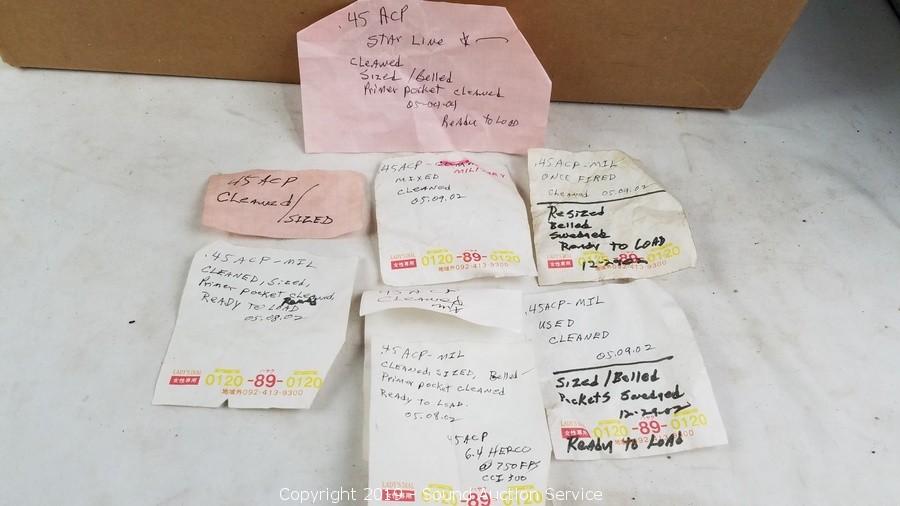 .45 ACP
STAR LINE
CLEANED
SIZED / Belled
Primer pocket cleaned
05-04-04
Ready to LOAD
.45 ACP
Cleaned/
SIZED
.45ACP-
MILITARY
MIXED
CLEANED
05.09.02
LADY'S DIAL
女性専用
0120-89-0120
地域外092-413-9300
.45ACP-MIL
ONCE FIRED
Cleaned 05.09.02
Resized
Belled
Swedged
Ready to LOAD
12-29-02
0120-89-0120
092-413-9300
.45ACP-MIL
CLEANED, Sized,
Primer pocket cleaned,
READY TO LOAD
05.08.02
LADY'S DIAL
女性専用
0120-89-0120
地域外092-413-9300
.45 ACP
Cleaned
.45 ACP-MIL
CLEANED, SIZED, Belled
Primer pocket cleaned
Ready to LOAD.
05.08.02
45ACP
6.4 HERCO
@ 750 FPS
CCI 300
LADY'S DIAL
女性専用
0120-89
.45ACP-MIL
USED
CLEANED
05.09.02
Sized/Belled
Pockets Swedged
12-29-02
LADY'S DIAL
女性専用
0120-89-0120
092-413-9300
Ready to LOAD
Copyright 2019 - Sound Auction Service